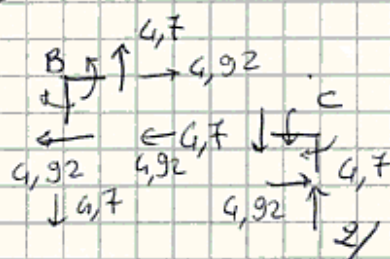 4,7
B 4,92
C
4,92 4,7
4,92 4,7
4,7 4,92
2/